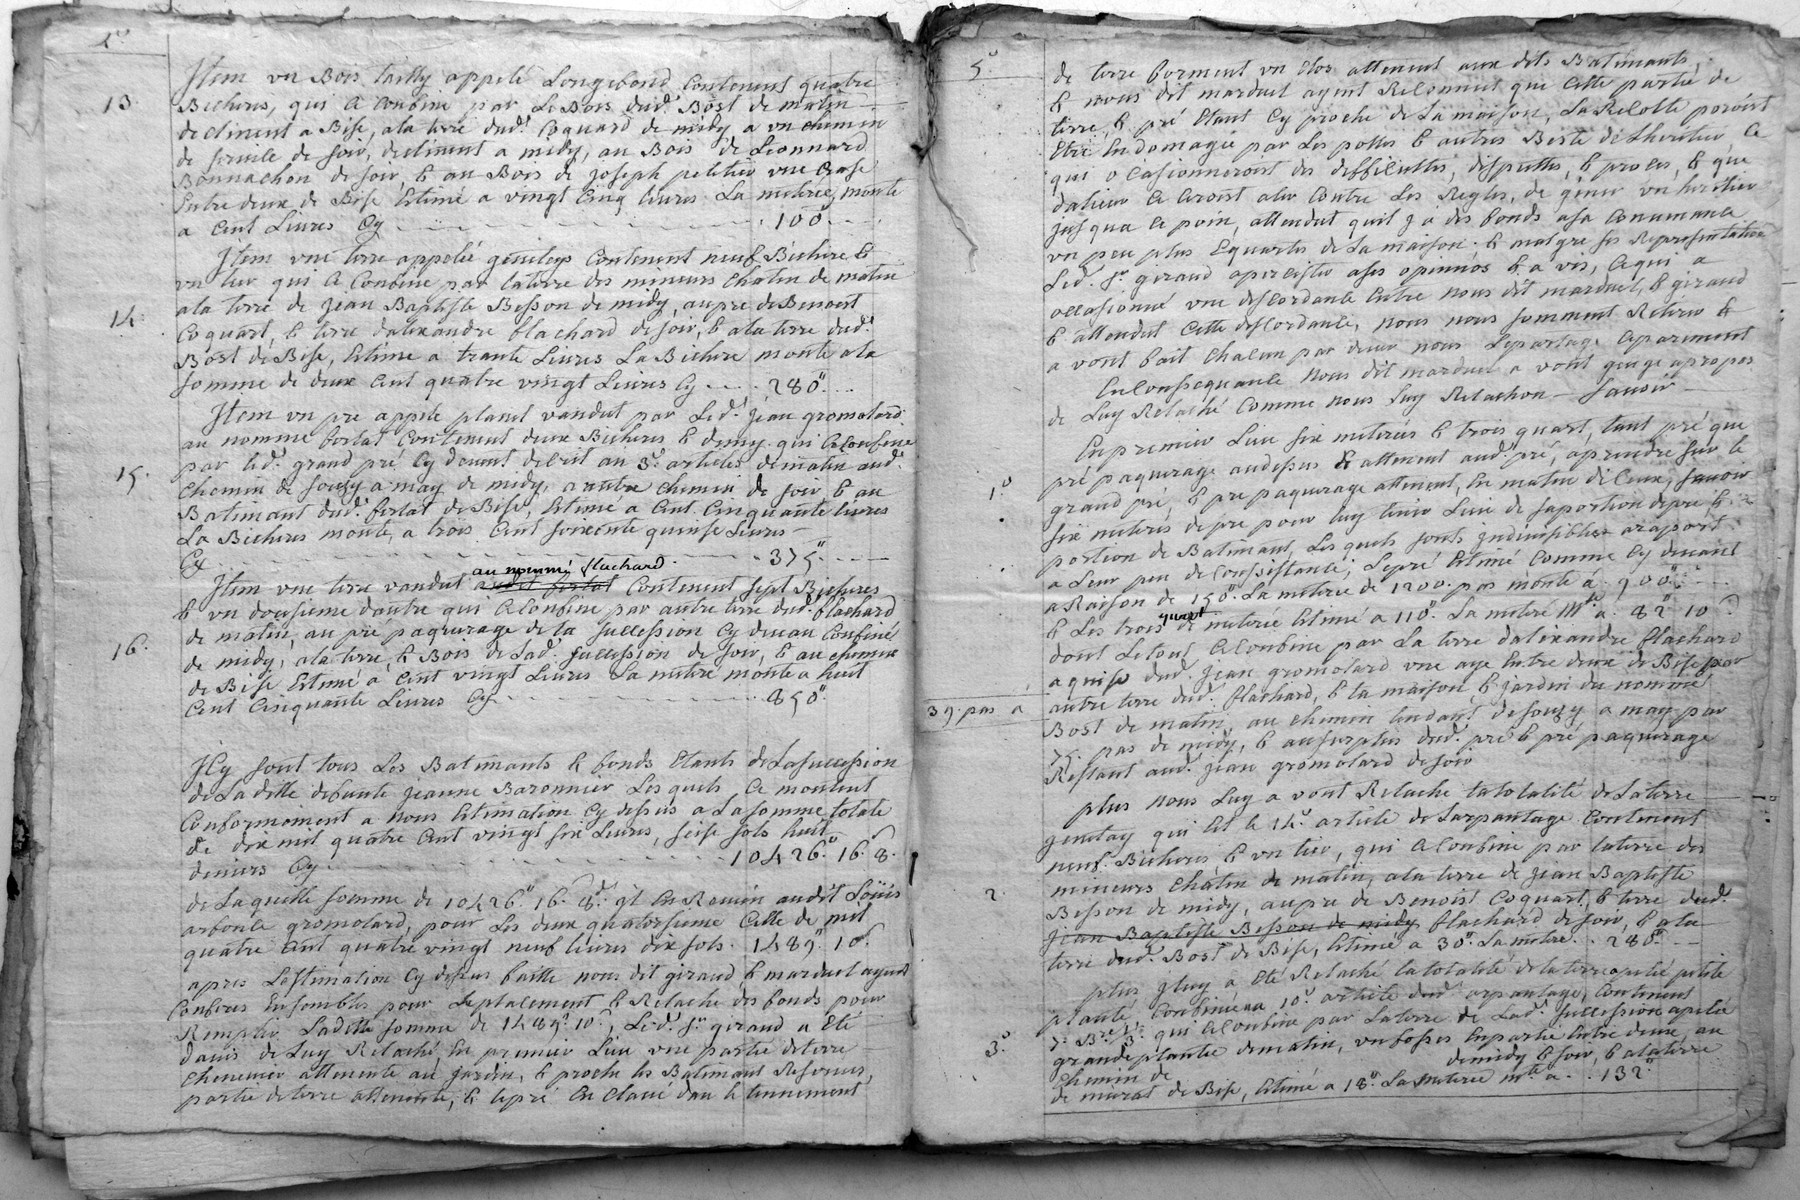 Item un Bois tailly appelé Longebond Contenent quatre
13 Bicheres, qui Ce Confine par Le Bois dud.t Bost de matin
declinent a Bise, ala terre dud.t Coquard de midy, a un chemin
de servile de soir, declinent a midy, au Bois de Leonnard
Bonnachon de soir, & au Bois de joseph pelitier une Crase
Entre deux de Bise Estimé a vingt Cinq Livres La meterée, monte
a Cent Livres Cy 100"
Item une terre appelée genetays Contenent neuf Bichere &
un tier qui Ce Confine par laterre des mineurs Chatin de matin
14. ala terre de jean Baptiste Besson de midy, au pre de Benoist
Coquart, & terre dalexandre flachard de soir, & ala terre dud.t
Bost de Bise, Estimé a trante Livres La Bichere monte ala
somme de deux Cent quatre vingt Livres Cy 280"
Item un pre appelé planet vandut par Led.t jean gromolard
au nomme fertat Contenent deux Bicheres & demy qui Ce Confine
15. par led.t grand pré Cy devent decrit au 3.e article, de matin aud.t
Chemin de souzy a may de midy, a autre chemin de soir & au
Batimant dud.t fertat de Bise, Estimé a Cent Cinquante livres
La Bicheres monte, a trois Cent soixente quinse Livres
Cy 375"
au nommé flachard
Item une terre vandut audit fertat Contenent sept Bicheres
& un dousieme dautre qui Ce Confine par autre terre dud.t flachard
16. de matin, au pré paquerage de la succession Cy devau Confiné
de midy, ala terre, & Bois de Lad.t succession de soir, & au chemin
de Bise Estimé a Cent vingt Livres La metere monte a huit
Cent Cinquante Livres Cy 850"
Ily sont tous Les Batimants & fonds Etants de La succession
de La ditte defunte jeanne Baronnier Les quels Ce montent
Conformoment a nous Estimation Cy dessus a La somme totale
de dix mil quatre Cent vingt six Livres, seise sols huit
deniers Cy 10426" 16. 8.
de Laquelle somme de 10426" 16. 8.d il En Revien audit Loüis
arboule gromolard, pour Les deux quatorsieme Celle de mil
quatre Cent quatre vingt neuf livres dix sols. 1489" 10.s
apres Lestimation Cy dessus faitte nous dit giraud, & marduel ayent
Conferes Ensembles pour Leplacement & Relache des fonds pour
Remplir Laditte somme de 1489" 10.s, Led.t s.r giraud a Eté
davis de Luy Relaché En premier Lieu une partie de terre
Cheneviere attenente au jardin, & proche les Batimant Reserves,
partie de terre attenente, & le pré En Clavé dan le tennement
5.
de terre forment un Clos attenent aux dits Batimants,
& nous dit marduel ayent Reconnut que Cette partie de
terre, & pré Etant Cy proche de La maison, La Recolte poroist
Etre Endomagée par Les polles & autres Beste de Lheritier Ce
qui ocasionneroist des diffiCultes, disputtes, & proces, & que
dalieur Ce Croist aler Contre Les Regles, de gener un heritier
jusqua Ce poin, attendut quil y a des fonds asa Convenance
un peu plus Equartes de La maison. & malgre ses Representation
Led.t s.r giraud aper Cister a ses opinions & a vis, Ce qui a
occasionné une disCordance Entre nous dit marduel, & giraud
& attendut Cette disCordance, nous nous somment Retires &
a vont fait Chacun par dever nous Lepartage Ceparement
En Conssequance Nous dit marduel a vont gugé apropos
de Luy Relaché Comme nous Luy Relachon Savoir
En premier Lieu six meterées & trois quart, tant pré que
1.o pré paquerage audessus & attenent aud.t pré, aprendre sur le
grand pré, & pre paquerage attenent, En matin de Ceux, savoir
six meteres de pre pour luy tenir Lieu de saportion de pre &
portion de Batimant, Les quels sonts indivisibles araport
a Leur peu de Conssistance, Le pré Estimé Comme Cy devant
a Raison de 150" La meterée de 1200. pas monte a 900"
& Les trois quart de meterée Estimé a 110" La meteré M.te a 82" 10.s
dont Le tout Ce Confine par La terre dalexandre flachard
aquise dud.t jean gromolard une aye Entre deux de Bise par
39. pas a autre terre dud.t flachard, & la maison & jardin du nommé
Bost de matin, au chemin tendant de souzy a may par
75. pas de midy, & au surplus dud.t pré & pré paquerage
Restant aud.t jean gromolard de soir
plus nous Luy a vont Relache latotalité de Laterre
genetay qui Est le 14.e article de Larpantage Contenent
neuf Bicheres & un tier, qui Ce Confine par laterre des
2. mineurs Chatin de matin, ala terre de jean Baptiste
Besson de midy, au pre de Benoist Coquart, & terre dud.t
jean Baptiste Besson de midy flachard de soir, & ala
terre dud.t Bost de Bise, Estimé a 30" La metere 280"
plus Jluy a Eté Relaché latotalité de la terre apelé petite
plante, Confinée au 10.e article dud.t arpantage, Contenent
3.o 7. B.res 1/3. qui Ce Confine par La terre de Lad.t succession apelée
grande plante de matin, un fosses En partie Entre deux, au
chemin de de midy & soir, & ala terre
de murat de Bise, Estimé a 18" La meterée m.te a 132"